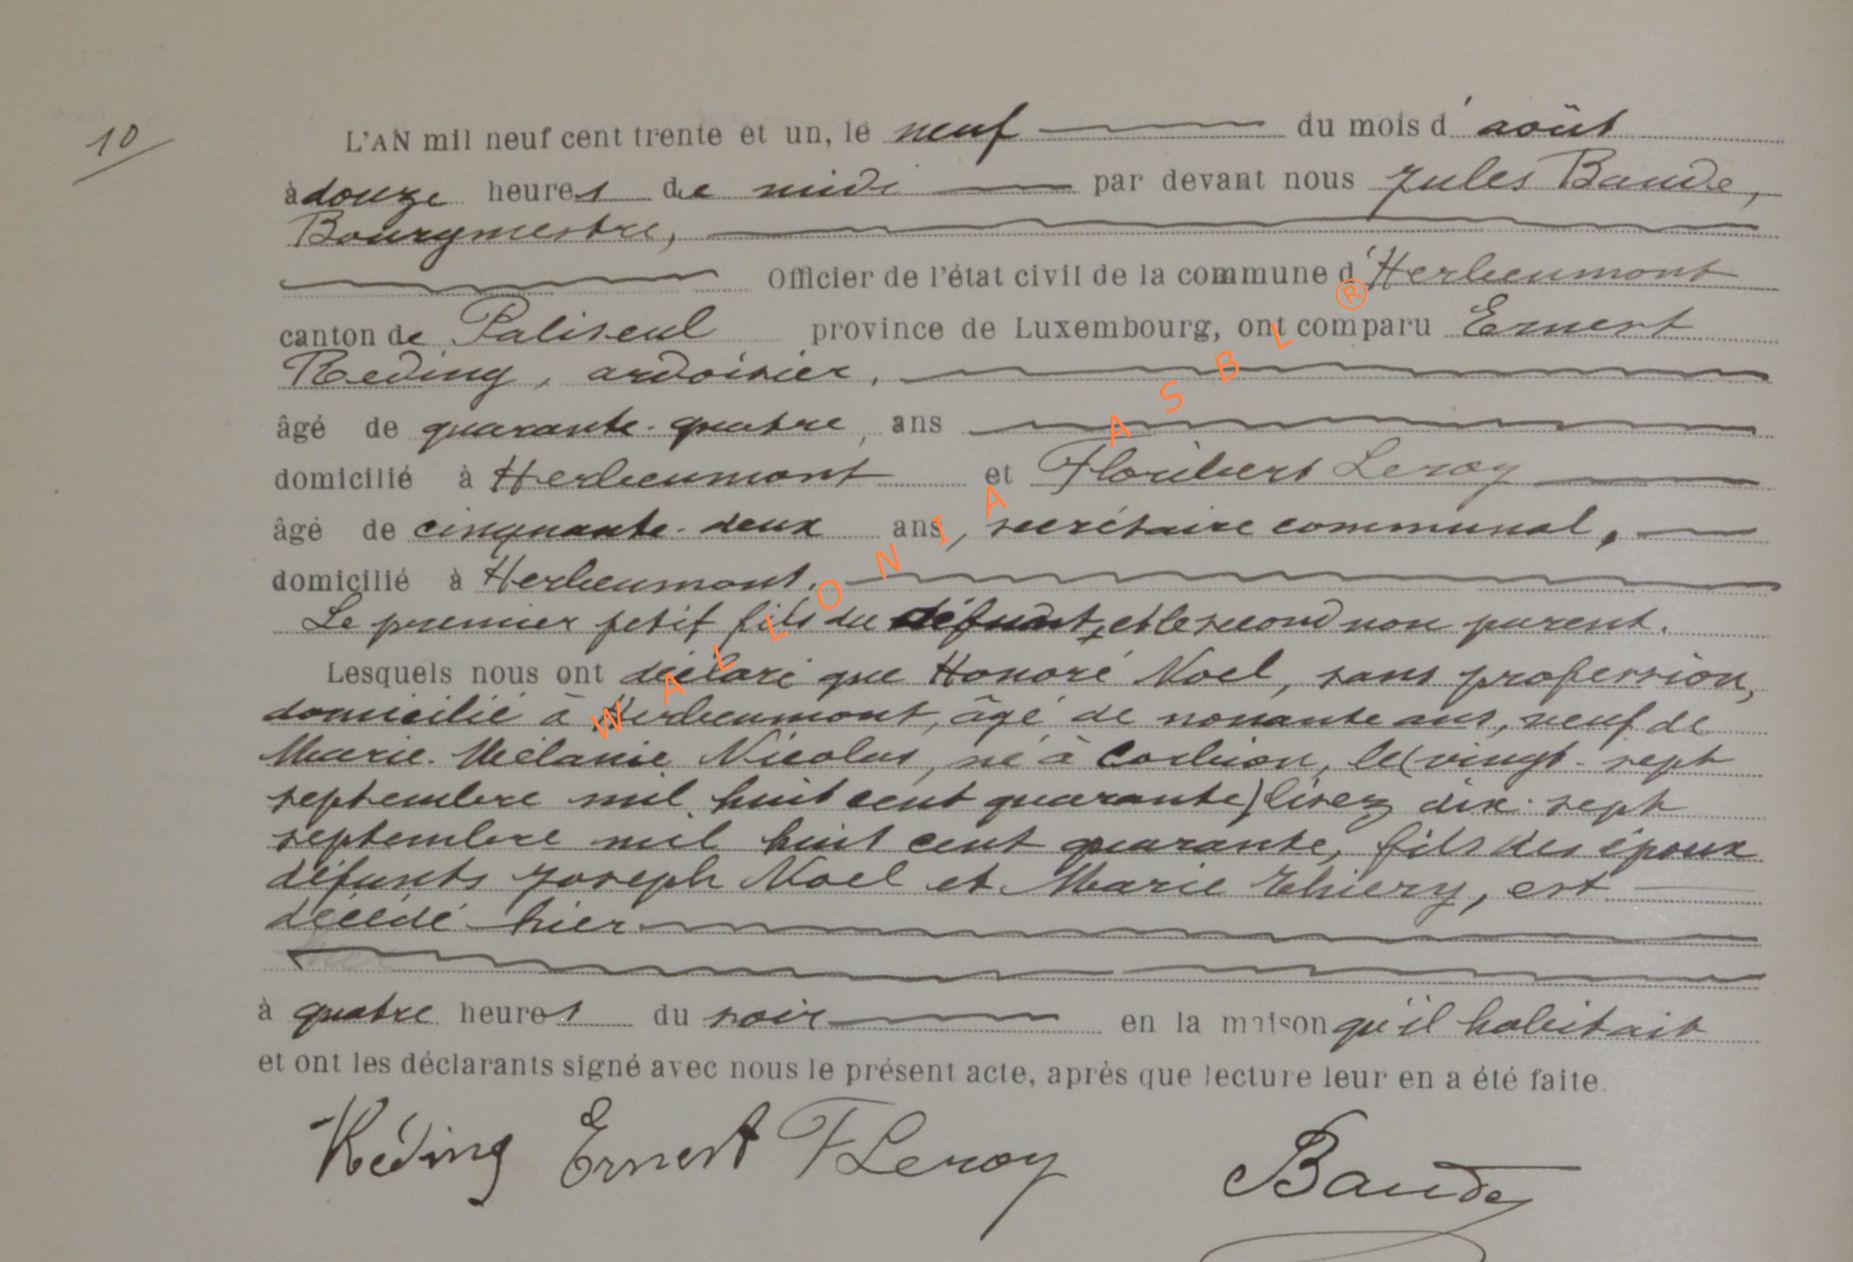 10
L'AN mil neuf cent trente et un, le neuf du mois d'août
à douze heures de midi par devant nous Jules Baude,
Bourgmestre,
Officier de l'état civil de la commune d'Herbeumont
canton de Paliseul province de Luxembourg, ont comparu Ernest
Reding, ardoisier,
âgé de quarante-quatre, ans
domicilié à Herbeumont et Floribert Leroy
âgé de cinquante-deux ans, secrétaire communal,
domicilié à Herbeumont.
Le premier petit fils du défunt, et le second non parent.
Lesquels nous ont déclaré que Honoré Noel, sans profession,
domicilié à Herbeumont, âgé de nonante ans, veuf de
Marie-Mélanie Nicolas, né à Corbion, le (vingt-sept
septembre mil huit cent quarante) lisez dix-sept
septembre mil huit cent quarante, fils des époux
défunts Joseph Noel et Marie Thiery, est
décédé hier
à quatre heures du soir en la maison qu'il habitait
et ont les déclarants signé avec nous le présent acte, après que lecture leur en a été faite.
Réding Ernest F Leroy Baude
WALLONIA ASBL ®